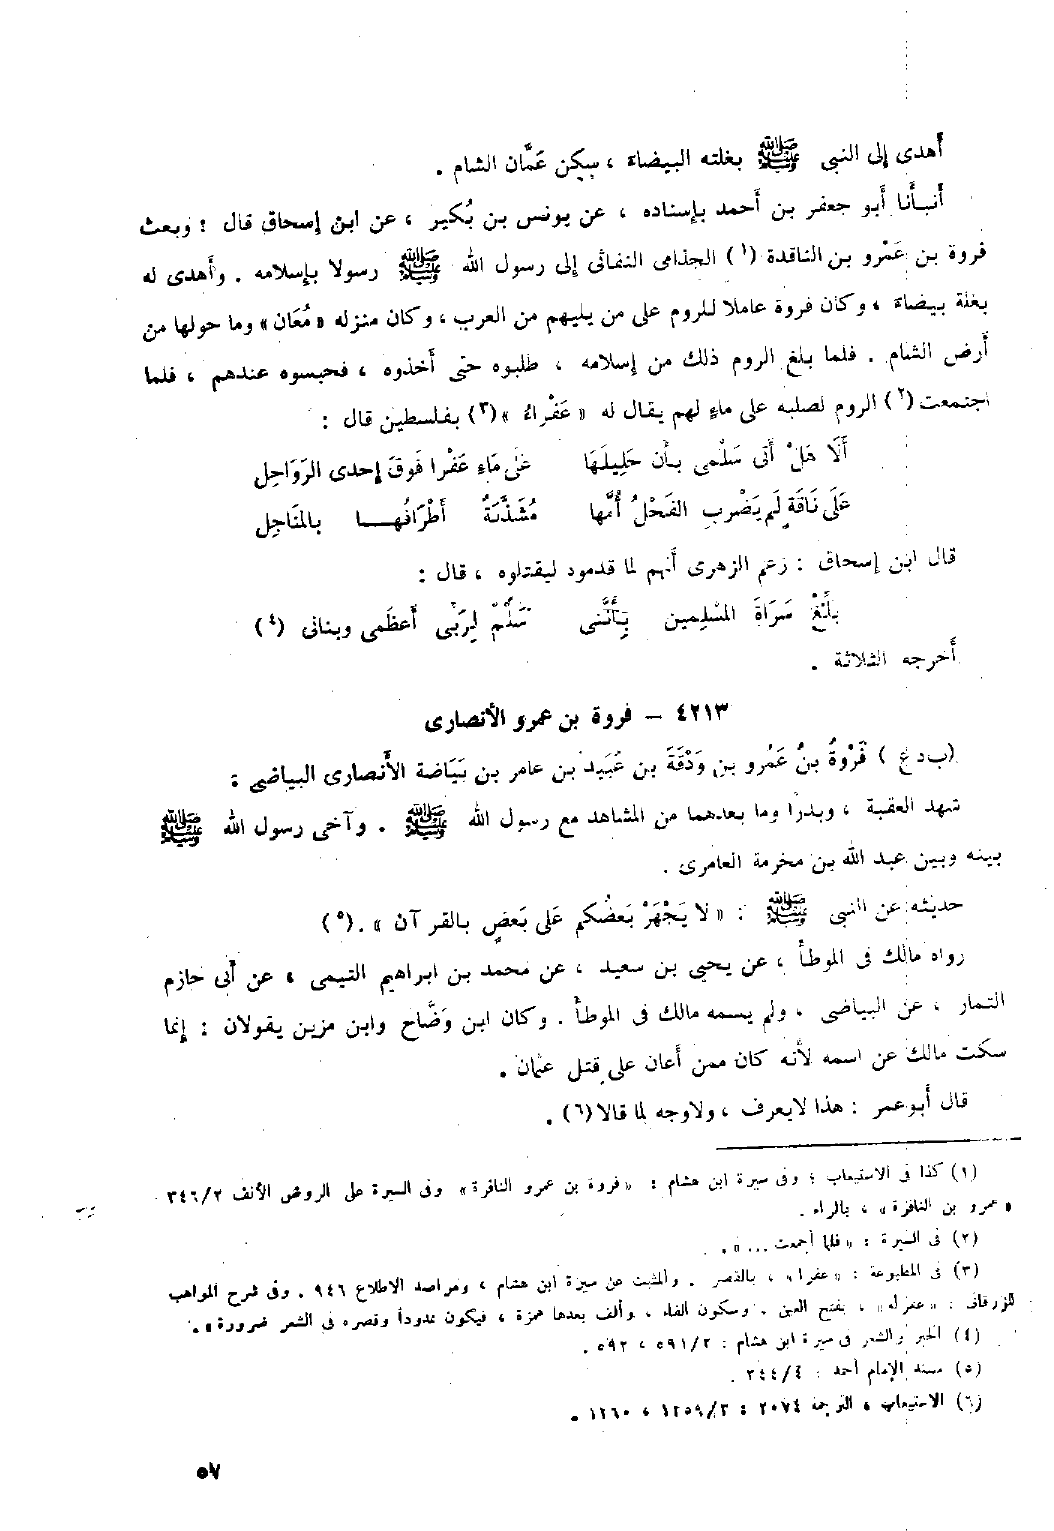 أهدى إلى النبي ﷺ بغلته البيضاء ، سكن عَمَّان الشام .
أنبأنا أبو جعفر بن أحمد بإسناده ، عن يونس بن بُكَير ، عن ابن إسحاق قال : وبعث
فروة بن عَمْرو بن الناقدة (١) الجذامى النفاثى إلى رسول الله ﷺ رسولا بإسلامه . وأهدى له
بغلة بيضاء ، وكان فروة عاملا للروم على من يليهم من العرب ، وكان منزله « مُعَان » وما حولها من
أرض الشام . فلما بلغ الروم ذلك من إسلامه ، طلبوه حتى أخذوه ، فحبسوه عندهم ، فلما
اجتمعت (٢) الروم لصلبه على ماءٍ لهم يقال له « عَفْراءُ » (٣) بفلسطين قال :
أَلَا هَلْ أَتَى سَلْمى بـأَن حَلِيلَهَا عَلَى مَاءِ عَفْرا فَوقَ إحدى الرَوَاحِلِ
عَلَى نَاقَةٍ لَم يَضْرِبِ الفَحْلُ أُمَّها مُشَذَّبَةٌ أَطْرَافُهـــا بالمَنَاجِل
قال ابن إسحاق : زعم الزهرى أنهم لما قدموه ليقتلوه ، قال :
بَلِّغْ سَرَاةَ المسْلِمين بِـأَنَّنى سَلْمٌ لِرَبِّى أَعظَمى وبنانى (٤)
أخرجه الثلاثة .
٤٢١٣ – فروة بن عمرو الأنصارى
(ب د ع) فَرْوَةُ بنُ عَمْرو بن وَدْقَةَ بن عُبَيد بن عامر بن بَيَاضة الأَنصارى البياضى :
شهد العقبة ، وبدرًا وما بعدهما من المشاهد مع رسول الله ﷺ . وآخى رسول الله ﷺ
بينه وبين عبد الله بن مخرمة العامرى .
حديثه عن النبى ﷺ : « لا يَجْهَرْ بَعضُكم عَلى بَعضٍ بالقرآن » . (٥)
رواه مالك فى الموطأ ، عن يحيى بن سعيد ، عن محمد بن ابراهيم التيمى ، عن أبى حازم
التمار ، عن البياضى ، ولم يسمه مالك فى الموطأ . وكان ابن وَضَّاح وابن مزين يقولان : إنما
سكت مالك عن اسمه لأنه كان ممن أعان على قتل عثمان .
قال أبو عمر : هذا لا يعرف ، ولا وجه لما قالا (٦) .
(١) كذا فى الاستيعاب ؛ وفى سيرة ابن هشام : « فروة بن عمرو النافرة » وفى السيرة على الروض الأنف ٣٤٦/٢
« عمرو بن النافرة » ، بالراء .
(٢) فى السيرة : « فلما أجمعت ... » .
(٣) فى المطبوعة : « عفرا » ، بالقصر . والمثبت عن سيرة ابن هشام ، ومراصد الاطلاع ٩٤٦ . وفى شرح المواهب
للزرقانى : « عفراء » ، بفتح العين . وسكون الفاء ، وألف بعدها همزة ، فيكون ممدوداً وقصره فى الشعر ضرورة » .
(٤) الخبر والشعر فى سيرة ابن هشام : ٥٩١/٢ ، ٥٩٢ .
(٥) مسند الإمام أحمد : ٣٤٤/٤ .
(٦) الاستيعاب ، الترجمة ٢٠٧٤ : ١٢٥٩/٣ ، ١٢٦٠ .
٥٧